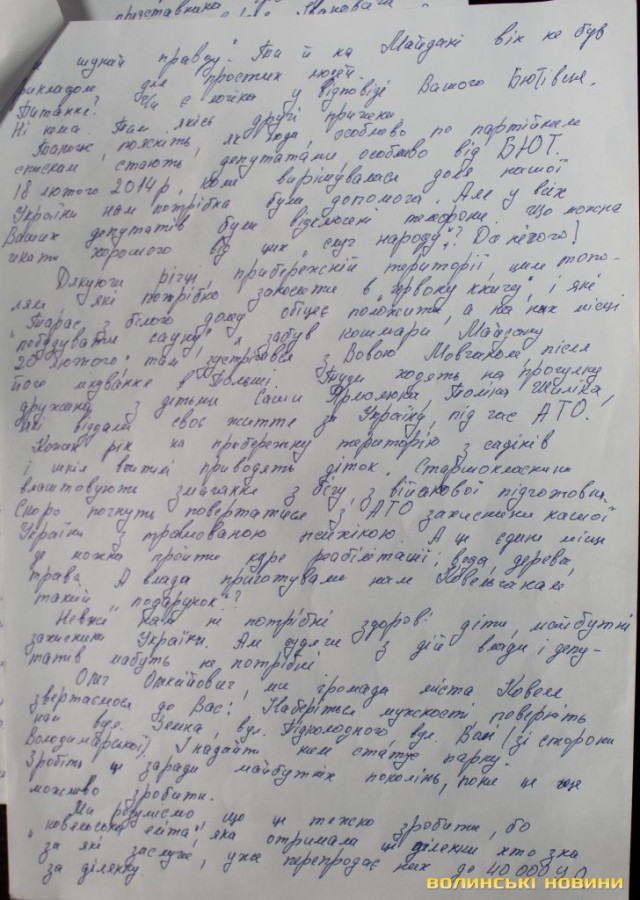 шукай правду". Та й на Майдані він не був
прикладом для простих людей.
Питання? Чи є логіка у відповіді Вашого Бютівця.
Ні нема. Там якісь другі
Також, поясніть, як люди, особливо по партійним
спискам стають депутатами, особливо від БЮТ.
18 лютого 2014 р, коли вирішувалася доля нашої
України нам потрібна була допомога. Але у всіх
Ваших депутатів були відключені телефони. Що можна
чекати хорошого від цих "слуг народу"? Да нічого!
Дякуючи річці, прибережній території, цим топо-
лям, які потрібно заносити в "Червону книгу", і які
"Тарас з білого дому" обіцяє положити, а на них місці
побудувати сауну", я забув кошмари Майдану
20 лютого; там зустрівався з Вовою Мовчаном, після
його лікування в Польщі. Туди ходять на прогулку
дружини з дітьми Саши Ярмолюка, Толіка Шиліка,
які віддали своє життя за Україну, під час АТО.
Кожен рік на прибережну територію з садіків
і шкіл вчителі приводять діток. Старшокласники
влаштовують змагання з бігу, з військової підготовки.
Скоро почнуть повертатися з АТО захисники нашої
України з травмованою психікою. А це єдине місце
де можна пройти курс реабілітації: вода, дерева,
трава. А влада приготувала нам Ковельчанам
такий "подарунок"?
Невже нам не потрібні здорові діти, майбутні
захисники України. Але судячи з дій влади і депу-
татів мабуть не потрібні
Олег ми громада міста Ковеля
звертаємося до Вас! Наберіться мужності, поверніть
нам вул. Земна, вул. Підколодного, вул. (зі сторони
Володимирської). І надайте ним статус парку.
Зробіть це заради майбутніх поколінь, поки це ще
можливо зробити.
Ми розуміємо, що це тяжко зробити, бо
"ковельська еліта", яка отримала ці ділянки хто зна
за які заслуги, уже перепродає них до 40 000 у.о
за ділянку.
ВОЛИНСЬКІ НОВИНИ